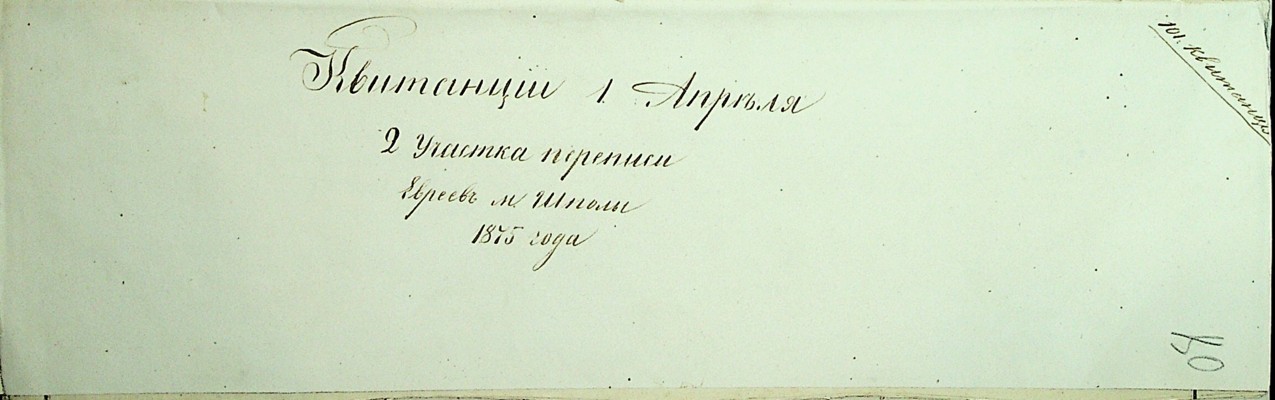 Квитанціи 1. Апрѣля
2 Участка переписи
Евреевъ м. Шполы
1875 года
101. квитанцi